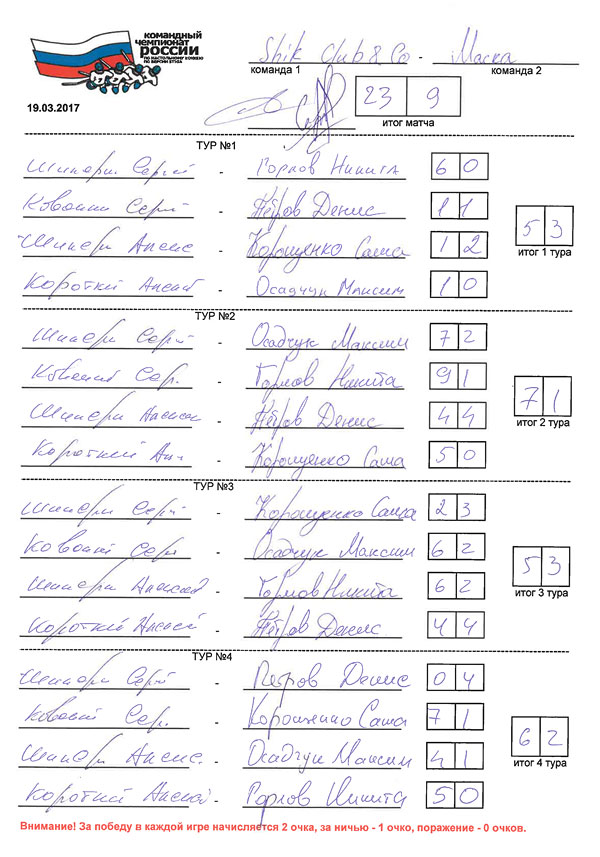 КОМАНДНЫЙ
ЧЕМПИОНАТ
РОССИИ
ПО НАСТОЛЬНОМУ ХОККЕЮ
ПО ВЕРСИИ STIGA
Shik Club & Co - Маска
команда 1 команда 2
19.03.2017
23 9
итог матча
ТУР №1
Шипери Сергей - Горлов Никита 6 0
Сергей - Петров Денис 1 1
Шипери Алексе - Корощенко Саша 1 2
Короткий Алексей - Осадчук Максим 1 0
5 3
итог 1 тура
ТУР №2
Шипери Сергей - Осадчук Максим 7 2
Сер. - Горлов Никита 9 1
Шипери Алексей - Петров Денис 4 4
Короткий Ал - Корощенко Саша 5 0
7 1
итог 2 тура
ТУР №3
Шипери Сергей - Корощенко Саша 2 3
Сергей - Осадчук Максим 6 2
Шипери Алексей - Горлов Никита 6 2
Короткий Алексей - Петров Денис 4 4
5 3
итог 3 тура
ТУР №4
Шипери Сергей - Петров Денис 0 4
Сер. - Корощенко Саша 7 1
Шипери Алексе. - Осадчук Максим 4 1
Короткий Алексей - Горлов Никита 5 0
6 2
итог 4 тура
Внимание! За победу в каждой игре начисляется 2 очка, за ничью - 1 очко, поражение - 0 очков.